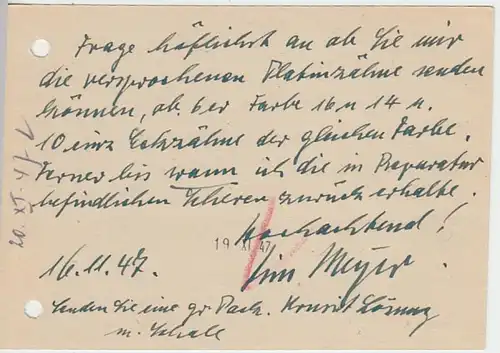 Frage höflichst an ob Sie mir
die versprochenen Platinzähne senden
können, ob. 6 er Farbe 16 u 14 u.
10 einz Eckzähne der gleichen Farbe.
Ferner bis wann ich die in Reparatur
befindlichen Scheren zurück erhalte.
Hochachtend!
19 XI. 47
16.11.47. Meyer.
Senden Sie eine gr. Pack.
m. Schale
20. XI. 47